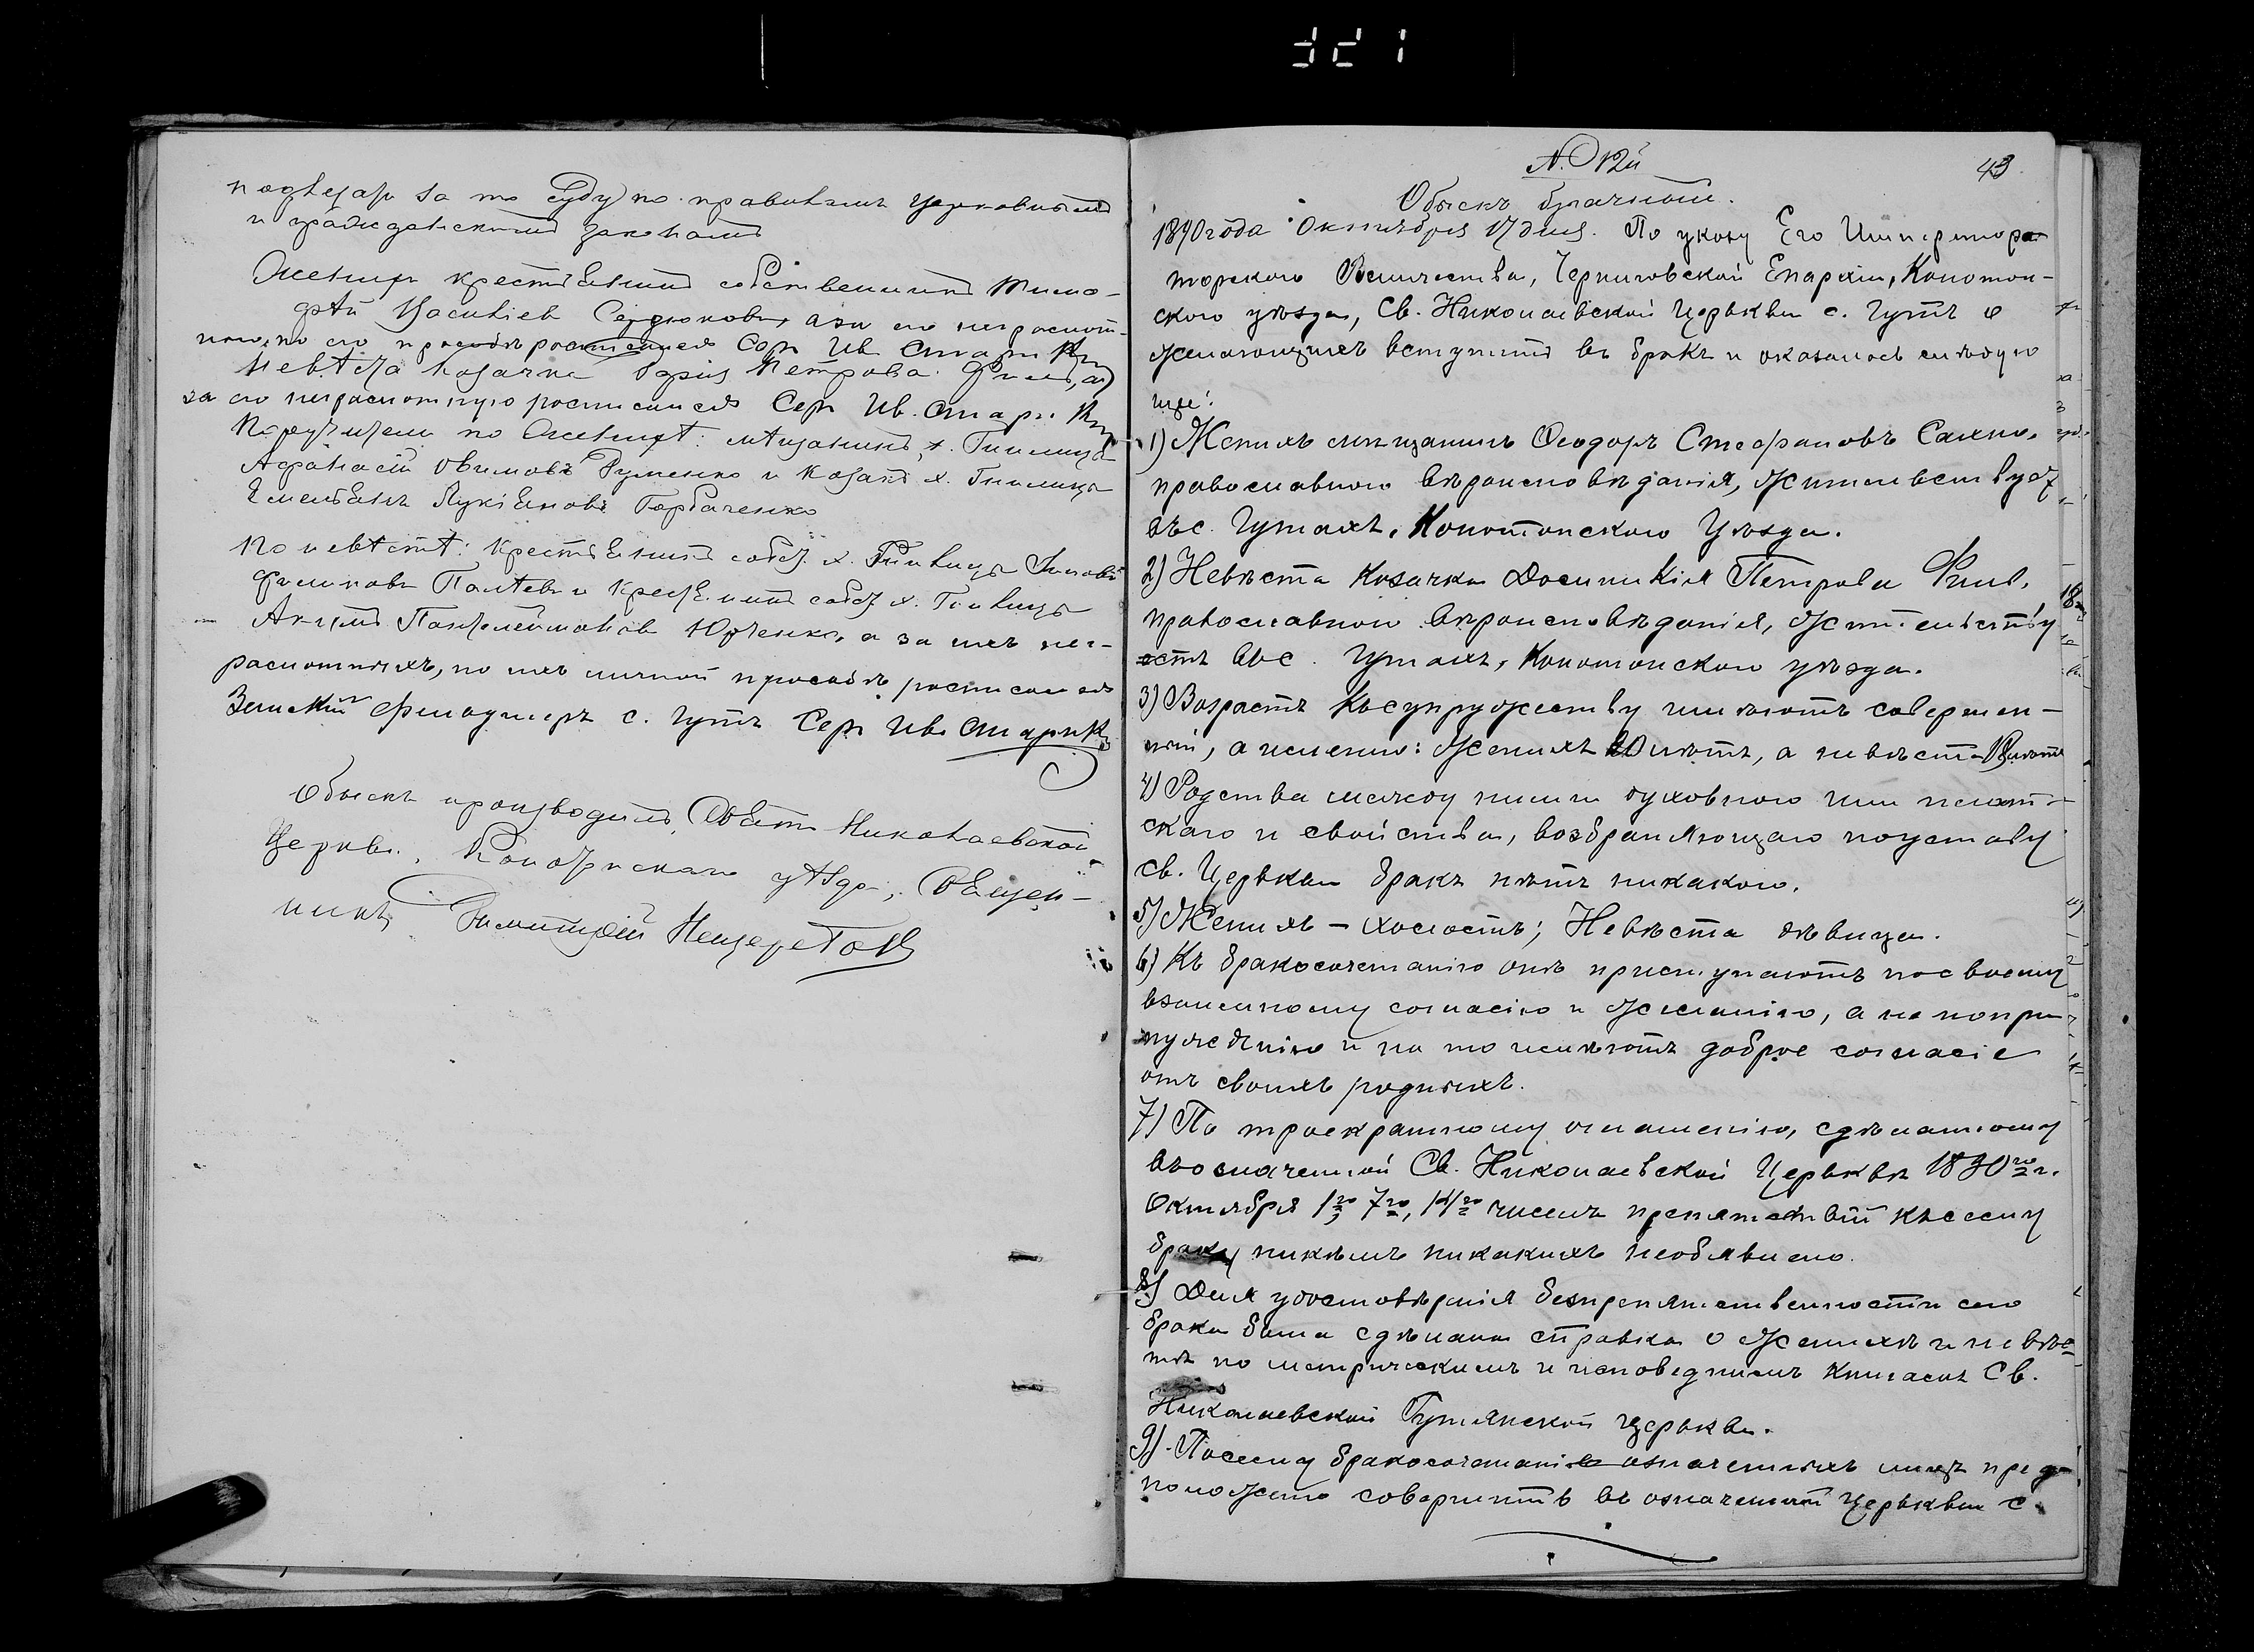 321
подвергаемъ за то Суду по правиламъ церковнымъ
и гражданскимъ законамъ
Женихъ крестьянинъ собственникъ Тимо-
фей Васильевъ Сердюковъ, а за его неграмот-
ного, по его просьбѣ росписался Сер. Ив. Стари
Невѣста козачка Дарія Петрова
за ее неграмотную росписался Сер. Ив. Стари
Поручители по Женихѣ: мѣщанинъ, х. Гнилица
Афанасій Руденко и Козакъ х. Гнилица
Емельянъ Лукьяновъ Горбаченко
По невѣстѣ: крестьянинъ собст. х. Гнилицы
Филиповъ и крестьянинъ собст. х. Гнилицы
Акимъ Пантелеймоновъ Юрченко, а за ихъ не-
грамотныхъ, по ихъ личной просьбѣ росписался
Земскій с. Гутъ Сер. Ив. Старик
Обыскъ производилъ, Свято Николаевской
Церкви, Конотопскаго уѣзда, Священ-
никъ Димитрій
N. 12й
43
Обыскъ брачный.
1890 года Октября 17 дня. По указу Его Император
торского Величества, Черниговской Епархіи, Конотоп-
ского уѣзда, Св. Николаевской Церькви с. Гутъ о
желающихъ вступить въ бракъ и оказалось слѣдую
щее:
1) Женихъ мѣщанинъ Феодоръ Стефановъ Сахно,
православного вѣроисповѣданія, жительствует
въ с. Гутахъ, Конотопского Уѣзда.
2) Невѣста Козачка Досипикія Петрова
православного вѣроисповѣданія, жительству
етъ въ с. Гутахъ, Конотопского уѣзда.
3) Возрастъ къ супружеству имѣютъ совершен-
ный, а именно: Женихъ 20 лѣтъ, а невѣста 18 лѣтъ
4) Родства между ними духовного или плот-
ского и свойства, возбраняющаго по уставу
св. Церькви бракъ нѣтъ никакого.
5) Женихъ - холостъ; Невѣста дѣвица.
6) Къ бракосочетанію онѣ приступаютъ по своему
взаимному согласію и желанію, а не по при
нужденію и на то имѣютъ доброе согласіе
отъ своихъ родныхъ.
7) По троекратному оглашенію, сдѣланному
въ означенной Св. Николаевской Церькви 1890го г.
Октября 1го, 7го, 14го чиселъ препятствій къ сему
браку никѣмъ никакихъ необявлено.
8) Для удостовѣренія безпрепятственности сего
брака была сдѣлана справка о женихѣ и невѣс-
тѣ по метрическимъ и исповеднимъ книгамъ Св.
Николаевской Гутянской церькви.
9) Посему бракосочетаніе означенныхъ лицъ пред
положено совершить въ означенной Церькви с